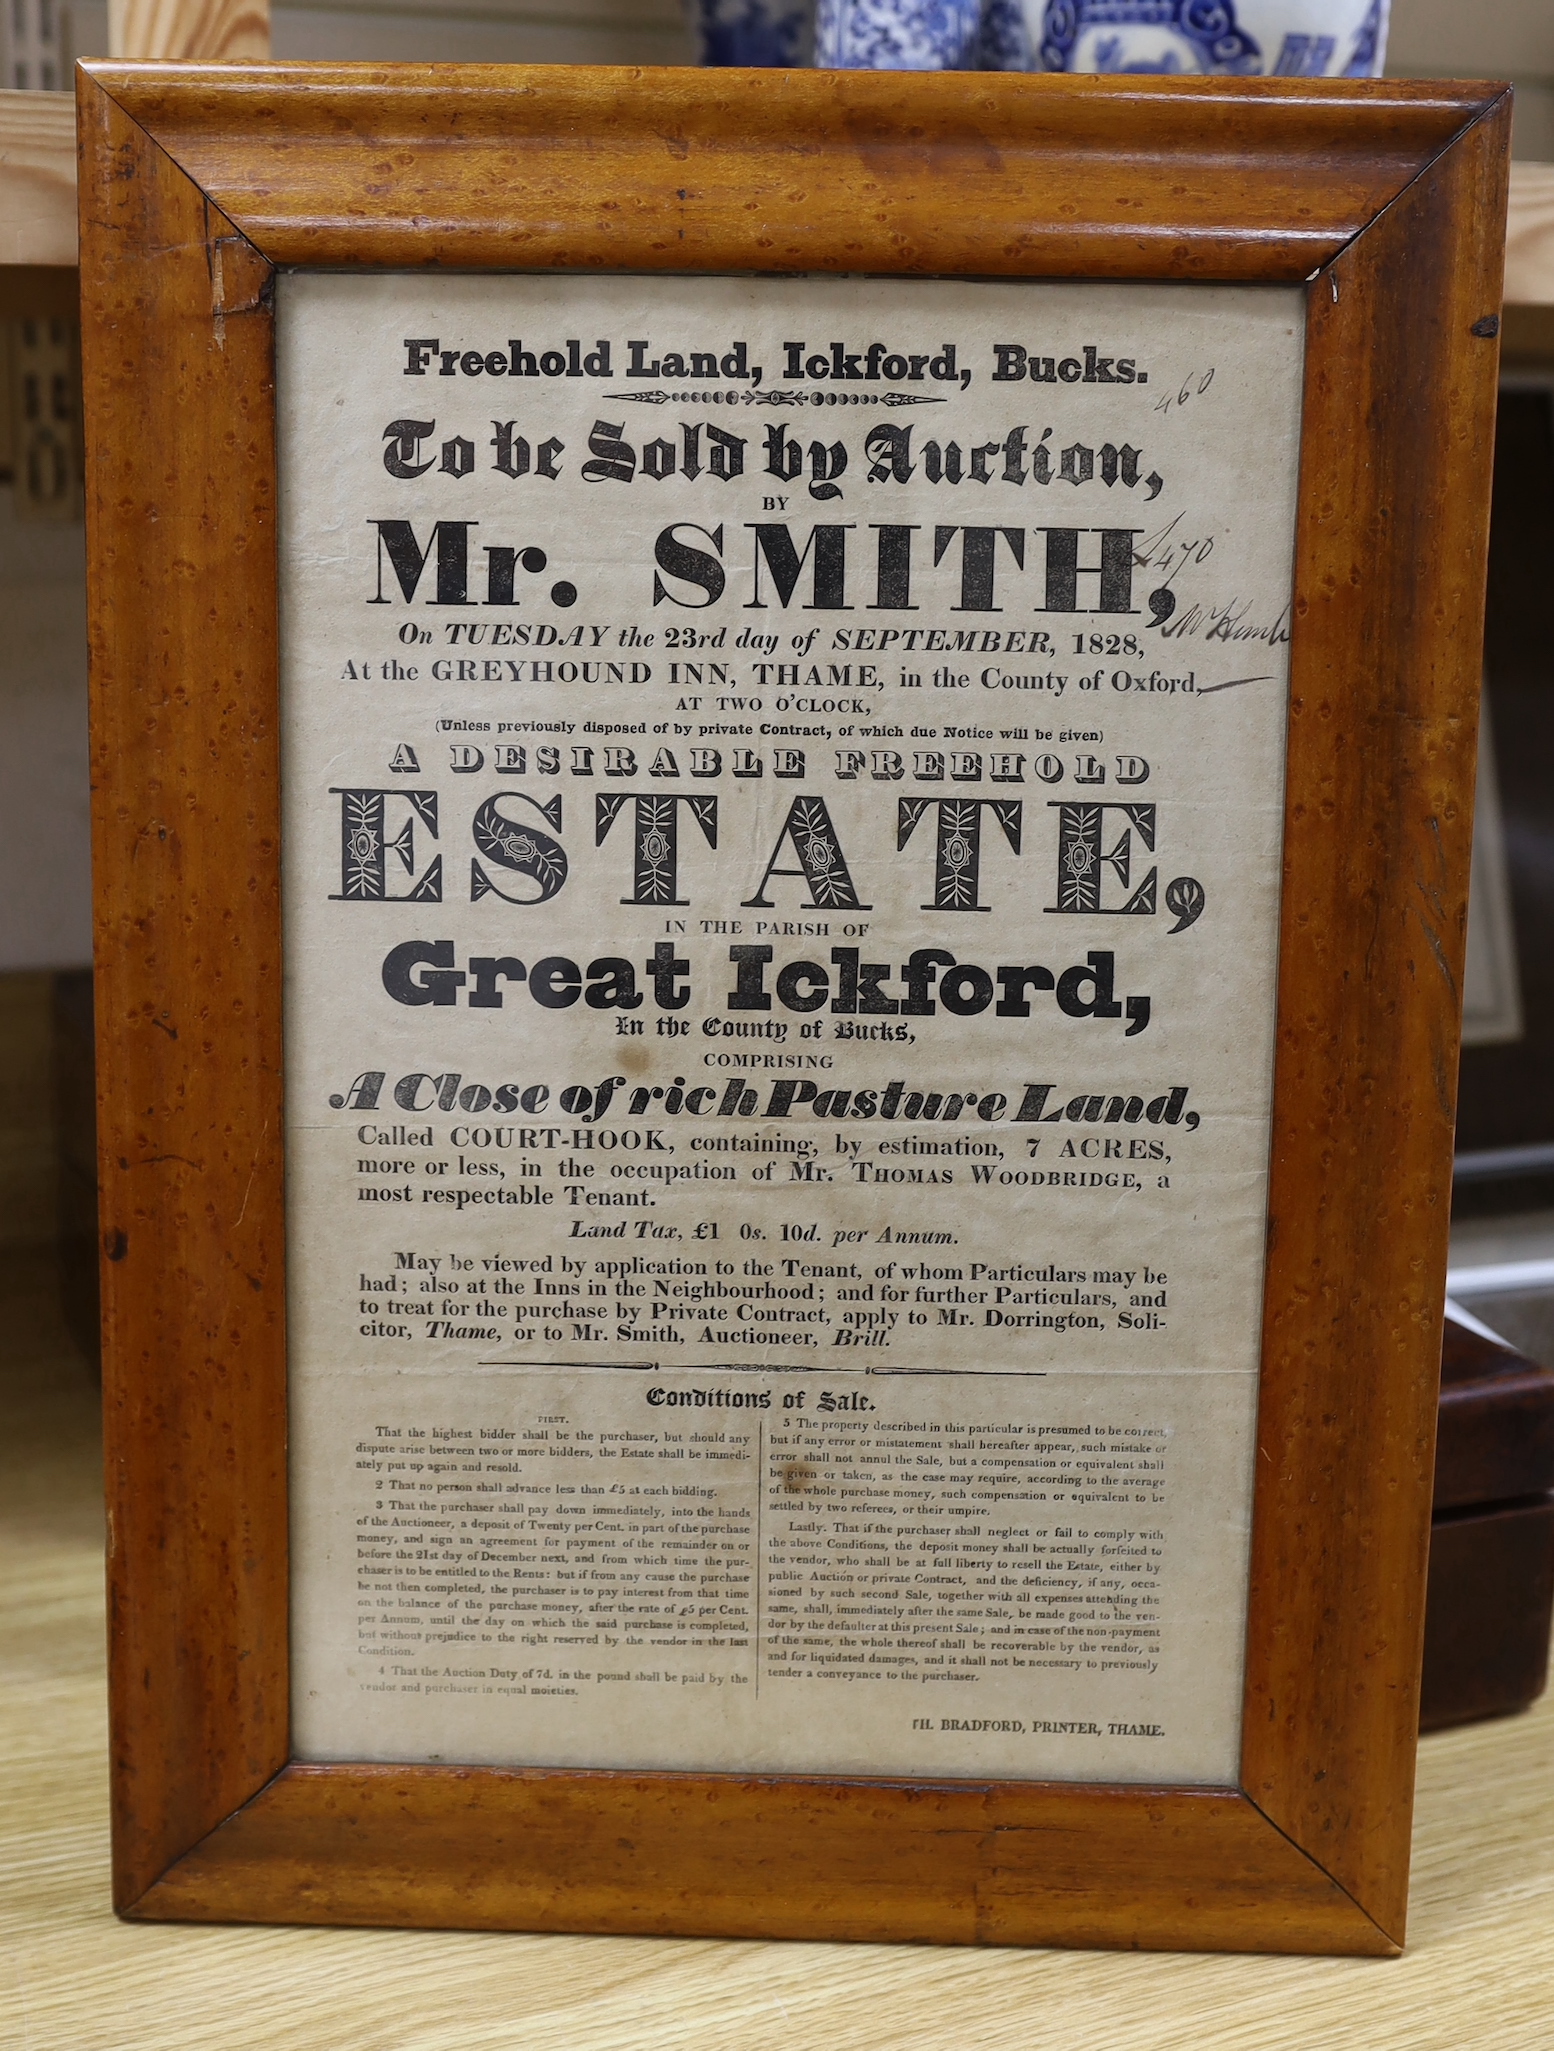 Freehold Land, Ickford, Bucks.
460
To be Sold by Auction,
BY
Mr. SMITH,
£470
On TUESDAY the 23rd day of SEPTEMBER, 1828,
At the GREYHOUND INN, THAME, in the County of Oxford,
AT TWO O'CLOCK,
(Unless previously disposed of by private Contract, of which due Notice will be given)
A DESIRABLE FREEHOLD
ESTATE,
IN THE PARISH OF
Great Ickford,
In the County of Bucks,
COMPRISING
A Close of rich Pasture Land,
Called COURT-HOOK, containing, by estimation, 7 ACRES,
more or less, in the occupation of Mr. THOMAS WOODBRIDGE, a
most respectable Tenant.
Land Tax, £1 0s. 10d. per Annum.
May be viewed by application to the Tenant, of whom Particulars may be
had; also at the Inns in the Neighbourhood; and for further Particulars, and
to treat for the purchase by Private Contract, apply to Mr. Dorrington, Soli-
citor, Thame, or to Mr. Smith, Auctioneer, Brill.
Conditions of Sale.
FIRST.
That the highest bidder shall be the purchaser, but should any
dispute arise between two or more bidders, the Estate shall be immedi-
ately put up again and resold.
2 That no person shall advance less than £5 at each bidding.
3 That the purchaser shall pay down immediately, into the hands
of the Auctioneer, a deposit of Twenty per Cent. in part of the purchase
money, and sign an agreement for payment of the remainder on or
before the 21st day of December next, and from which time the pur-
chaser is to be entitled to the Rents: but if from any cause the purchase
be not then completed, the purchaser is to pay interest from that time
on the balance of the purchase money, after the rate of £5 per Cent.
per Annum, until the day on which the said purchase is completed,
but without prejudice to the right reserved by the vendor in the last
Condition.
4 That the Auction Duty of 7d. in the pound shall be paid by the
vendor and purchaser in equal moieties.
5 The property described in this particular is presumed to be correct,
but if any error or mistatement shall hereafter appear, such mistake or
error shall not annul the Sale, but a compensation or equivalent shall
be given or taken, as the case may require, according to the average
of the whole purchase money, such compensation or equivalent to be
settled by two referees, or their umpire.
Lastly. That if the purchaser shall neglect or fail to comply with
the above Conditions, the deposit money shall be actually forfeited to
the vendor, who shall be at full liberty to resell the Estate, either by
public Auction or private Contract, and the deficiency, if any, occa-
sioned by such second Sale, together with all expenses attending the
same, shall, immediately after the same Sale, be made good to the ven-
dor by the defaulter at this present Sale; and in case of the non-payment
of the same, the whole thereof shall be recoverable by the vendor, as
and for liquidated damages, and it shall not be necessary to previously
tender a conveyance to the purchaser.
H. BRADFORD, PRINTER, THAME.